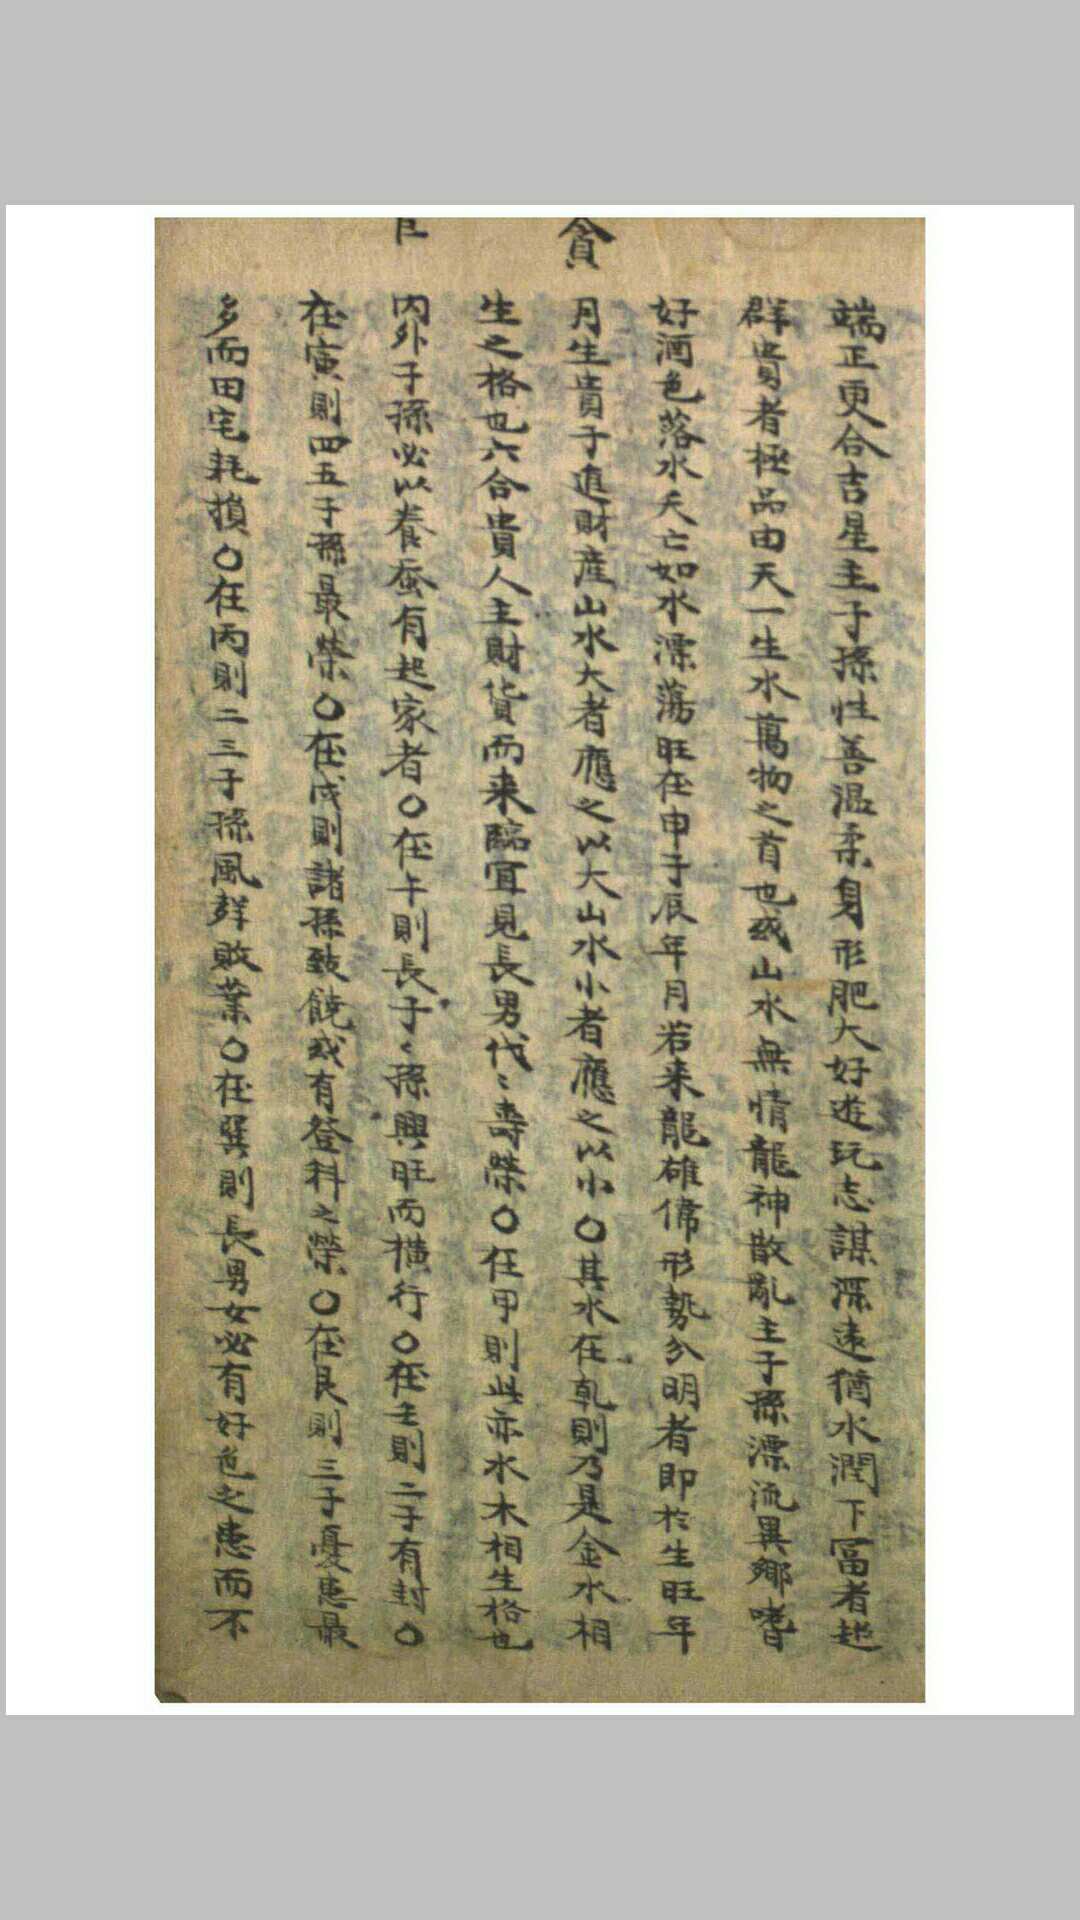 貪
巨
端正更合吉星主子孫性善温柔身形肥大好遊玩志謀深遠猶水潤下冨者超
群貴者極品由天一生水萬物之首也或山水無情龍神散亂主子孫漂流異鄉嗜
好酒色落水夭亡如水漂蕩旺在申子辰年月若来龍雄偉形勢分明者即於生旺年
月生貴子進財産山水大者應之以大山水小者應之以小〇其水在乾則乃是金水相
生之格也六合貴人主財貨而来臨宜見長男代〻壽榮〇在甲則此亦水木相生格也
内外子孫必以養蚕有起家者〇在午則長子〻孫興旺而橫行〇在壬則二子有封〇
在寅則四五子孫最榮〇在戌則諸孫致饒或有登科之榮〇在艮則三子憂患最
多而田宅耗損〇在丙則二三子孫風群敗業〇在巽則長男女必有好色之患而不